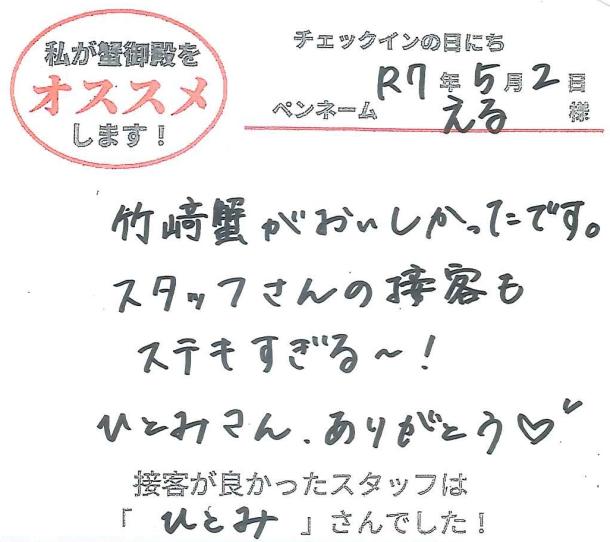 私が蟹御殿を
オススメ
します！
チェックインの日にち
R7年5月2日
ペンネーム える 様
竹崎蟹がおいしかったです。
スタッフさんの接客も
ステキすぎる～！
ひとみさん、ありがとう♡
接客が良かったスタッフは
「ひとみ」さんでした！